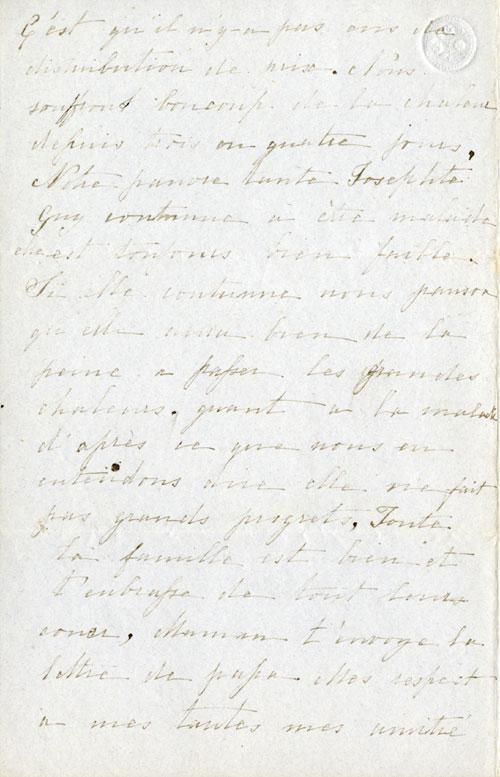 C'est qu'il n'y-a pas eus de
distribution de prix. Nous
souffrons boucoup de la chaleur
depuis trois ou quatre jours,
Notre pauvre tante Josephite
Guy continue à être malade
elle est toujours bien faible.
Si elle continue nous pensons
qu elle aura bien de la
peine a passer les grandes
chaleurs. quant a la malade
d'après ce que nous en
entendons dire elle ne fait
pas grands progrets. Toute
la famille est bien et
t'enbrasse de tout leurs
coeur, Maman t'envoye la
lettre de papa Mes respect
a mes tantes mes amitié